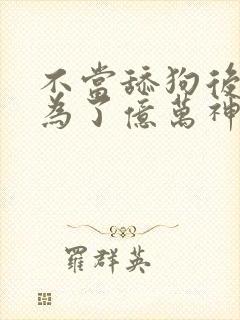 不當舔狗後
為了億萬神
羅群英